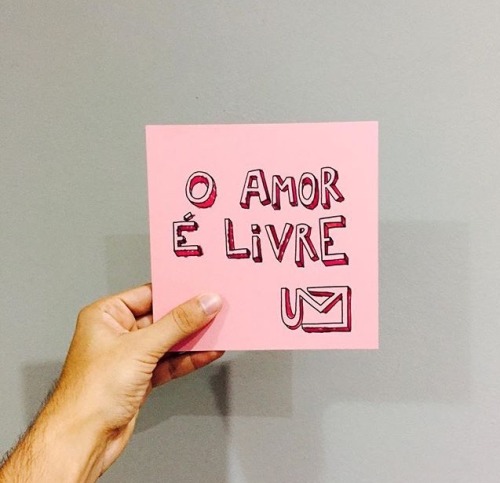 O AMOR
É LiVRE
UM